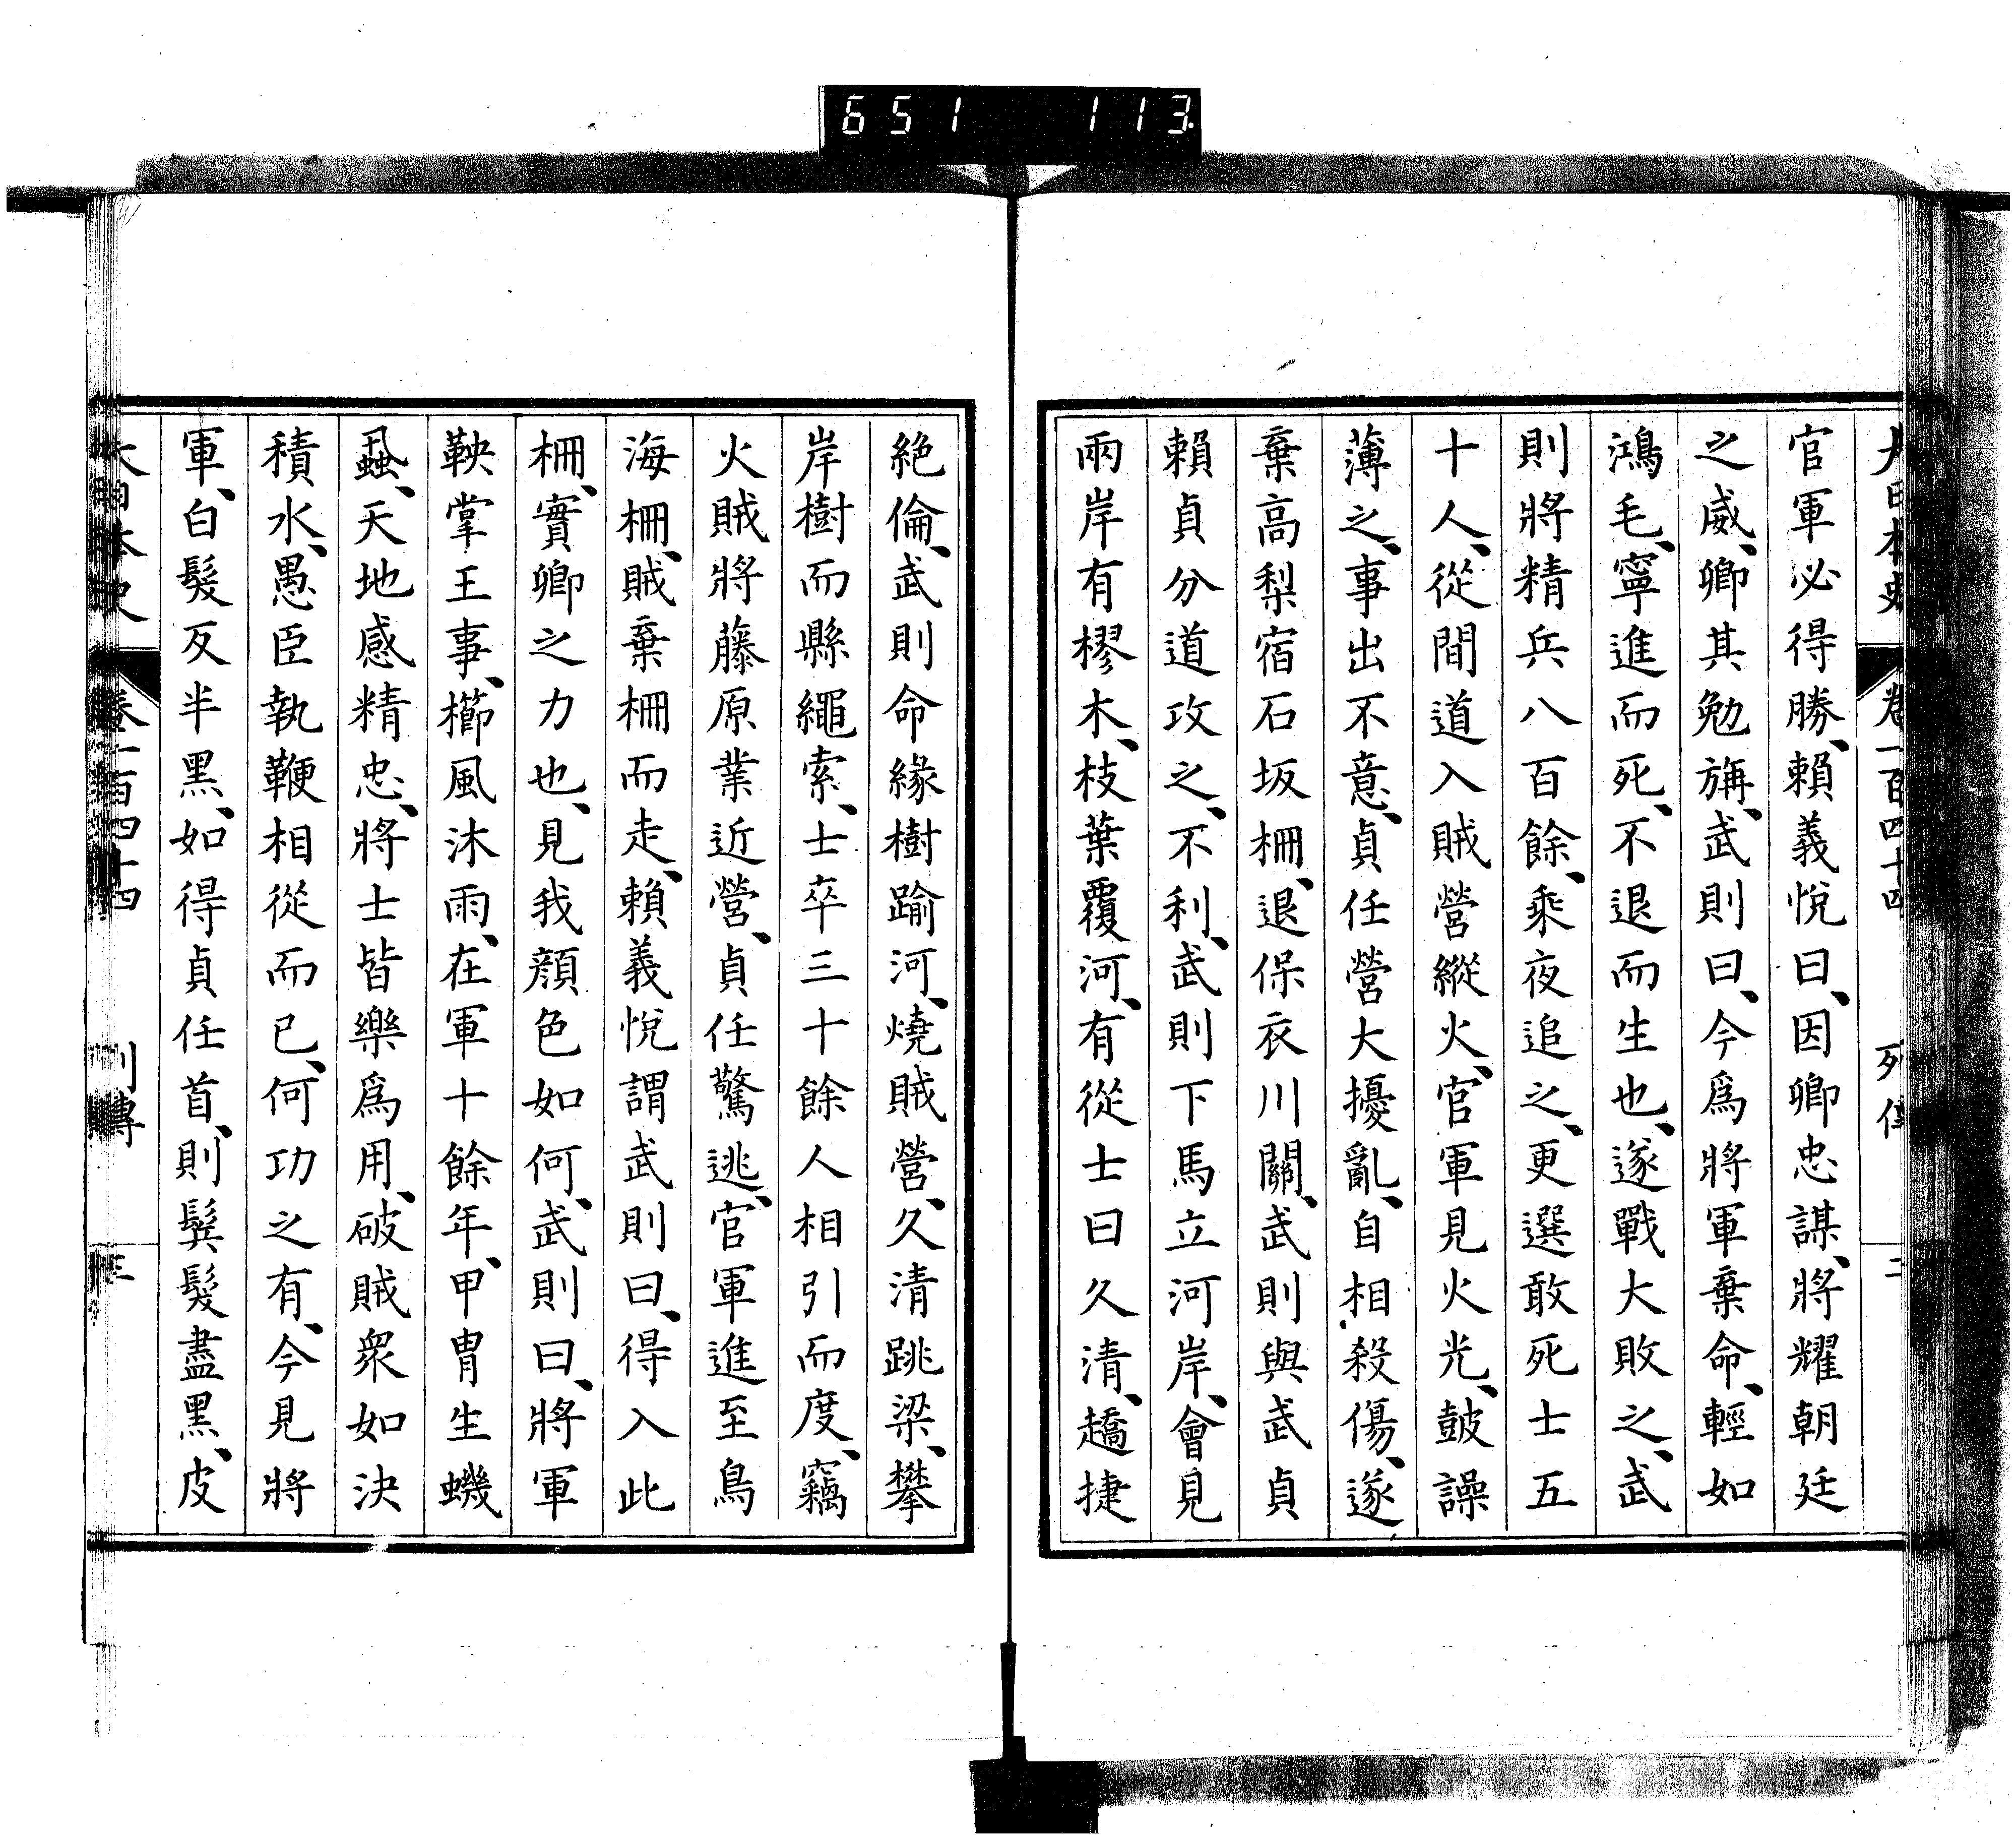 651 113
大日本史 卷一百四十四 列傳 二
官軍必得勝、賴義悅曰、因卿忠謀、將耀朝廷
之威、卿其勉旃、武則曰、今爲將軍棄命、輕如
鴻毛、寧進而死、不退而生也、遂戰大敗之、武
則將精兵八百餘、乘夜追之、更選敢死士五
十人、從間道入賊營縱火、官軍見火光、鼓譟
薄之、事出不意、貞任營大擾亂、自相殺傷、遂
棄高梨宿石坂柵、退保衣川關、武則與武貞
賴貞分道攻之、不利、武則下馬立河岸、會見
兩岸有樛木、枝葉覆河、有從士曰久清、趫捷
絶倫、武則命緣樹踰河、燒賊營、久清跳梁、攀
岸樹而縣繩索、士卒三十餘人相引而度、竊
火賊將藤原業近營、貞任驚逃、官軍進至鳥
海柵、賊棄柵而走、賴義悅謂武則曰、得入此
柵、實卿之力也、見我顏色如何、武則曰、將軍
鞅掌王事、櫛風沐雨、在軍十餘年、甲冑生蟣
蝨、天地感精忠、將士皆樂爲用、破賊衆如決
積水、愚臣執鞭相從而已、何功之有、今見將
軍、白髮反半黑、如得貞任首、則鬓髮盡黑、皮
大日本史 卷一百四十四 列傳 三